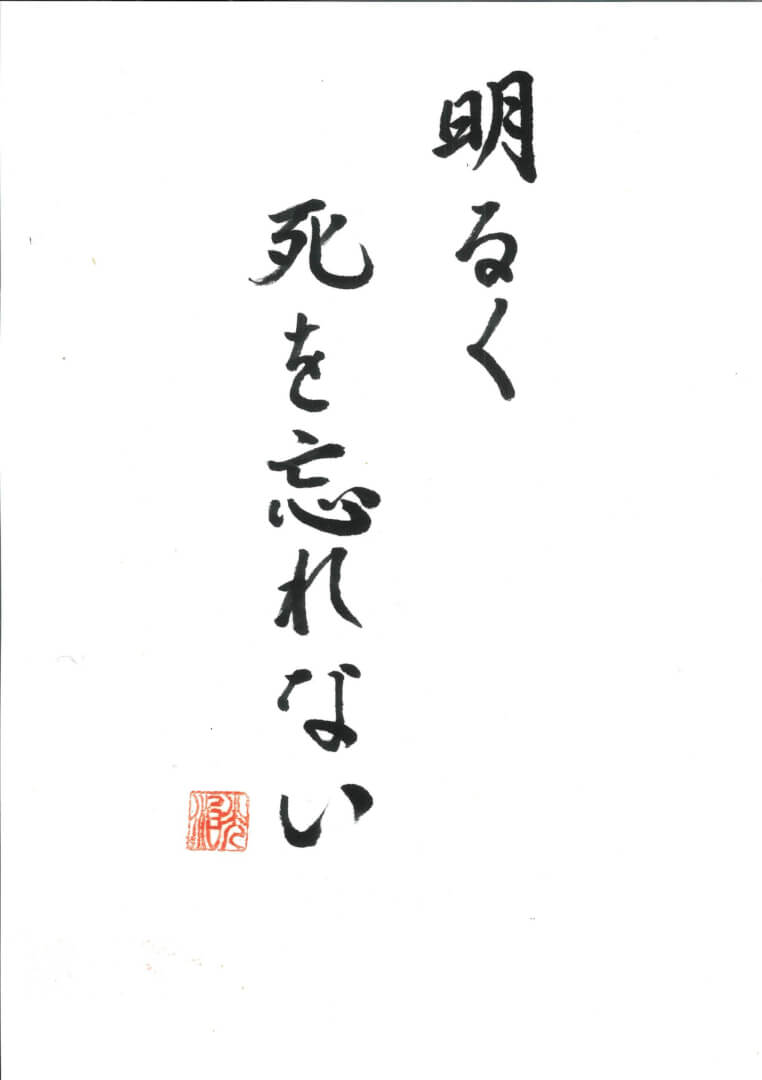 明るく
死を忘れない